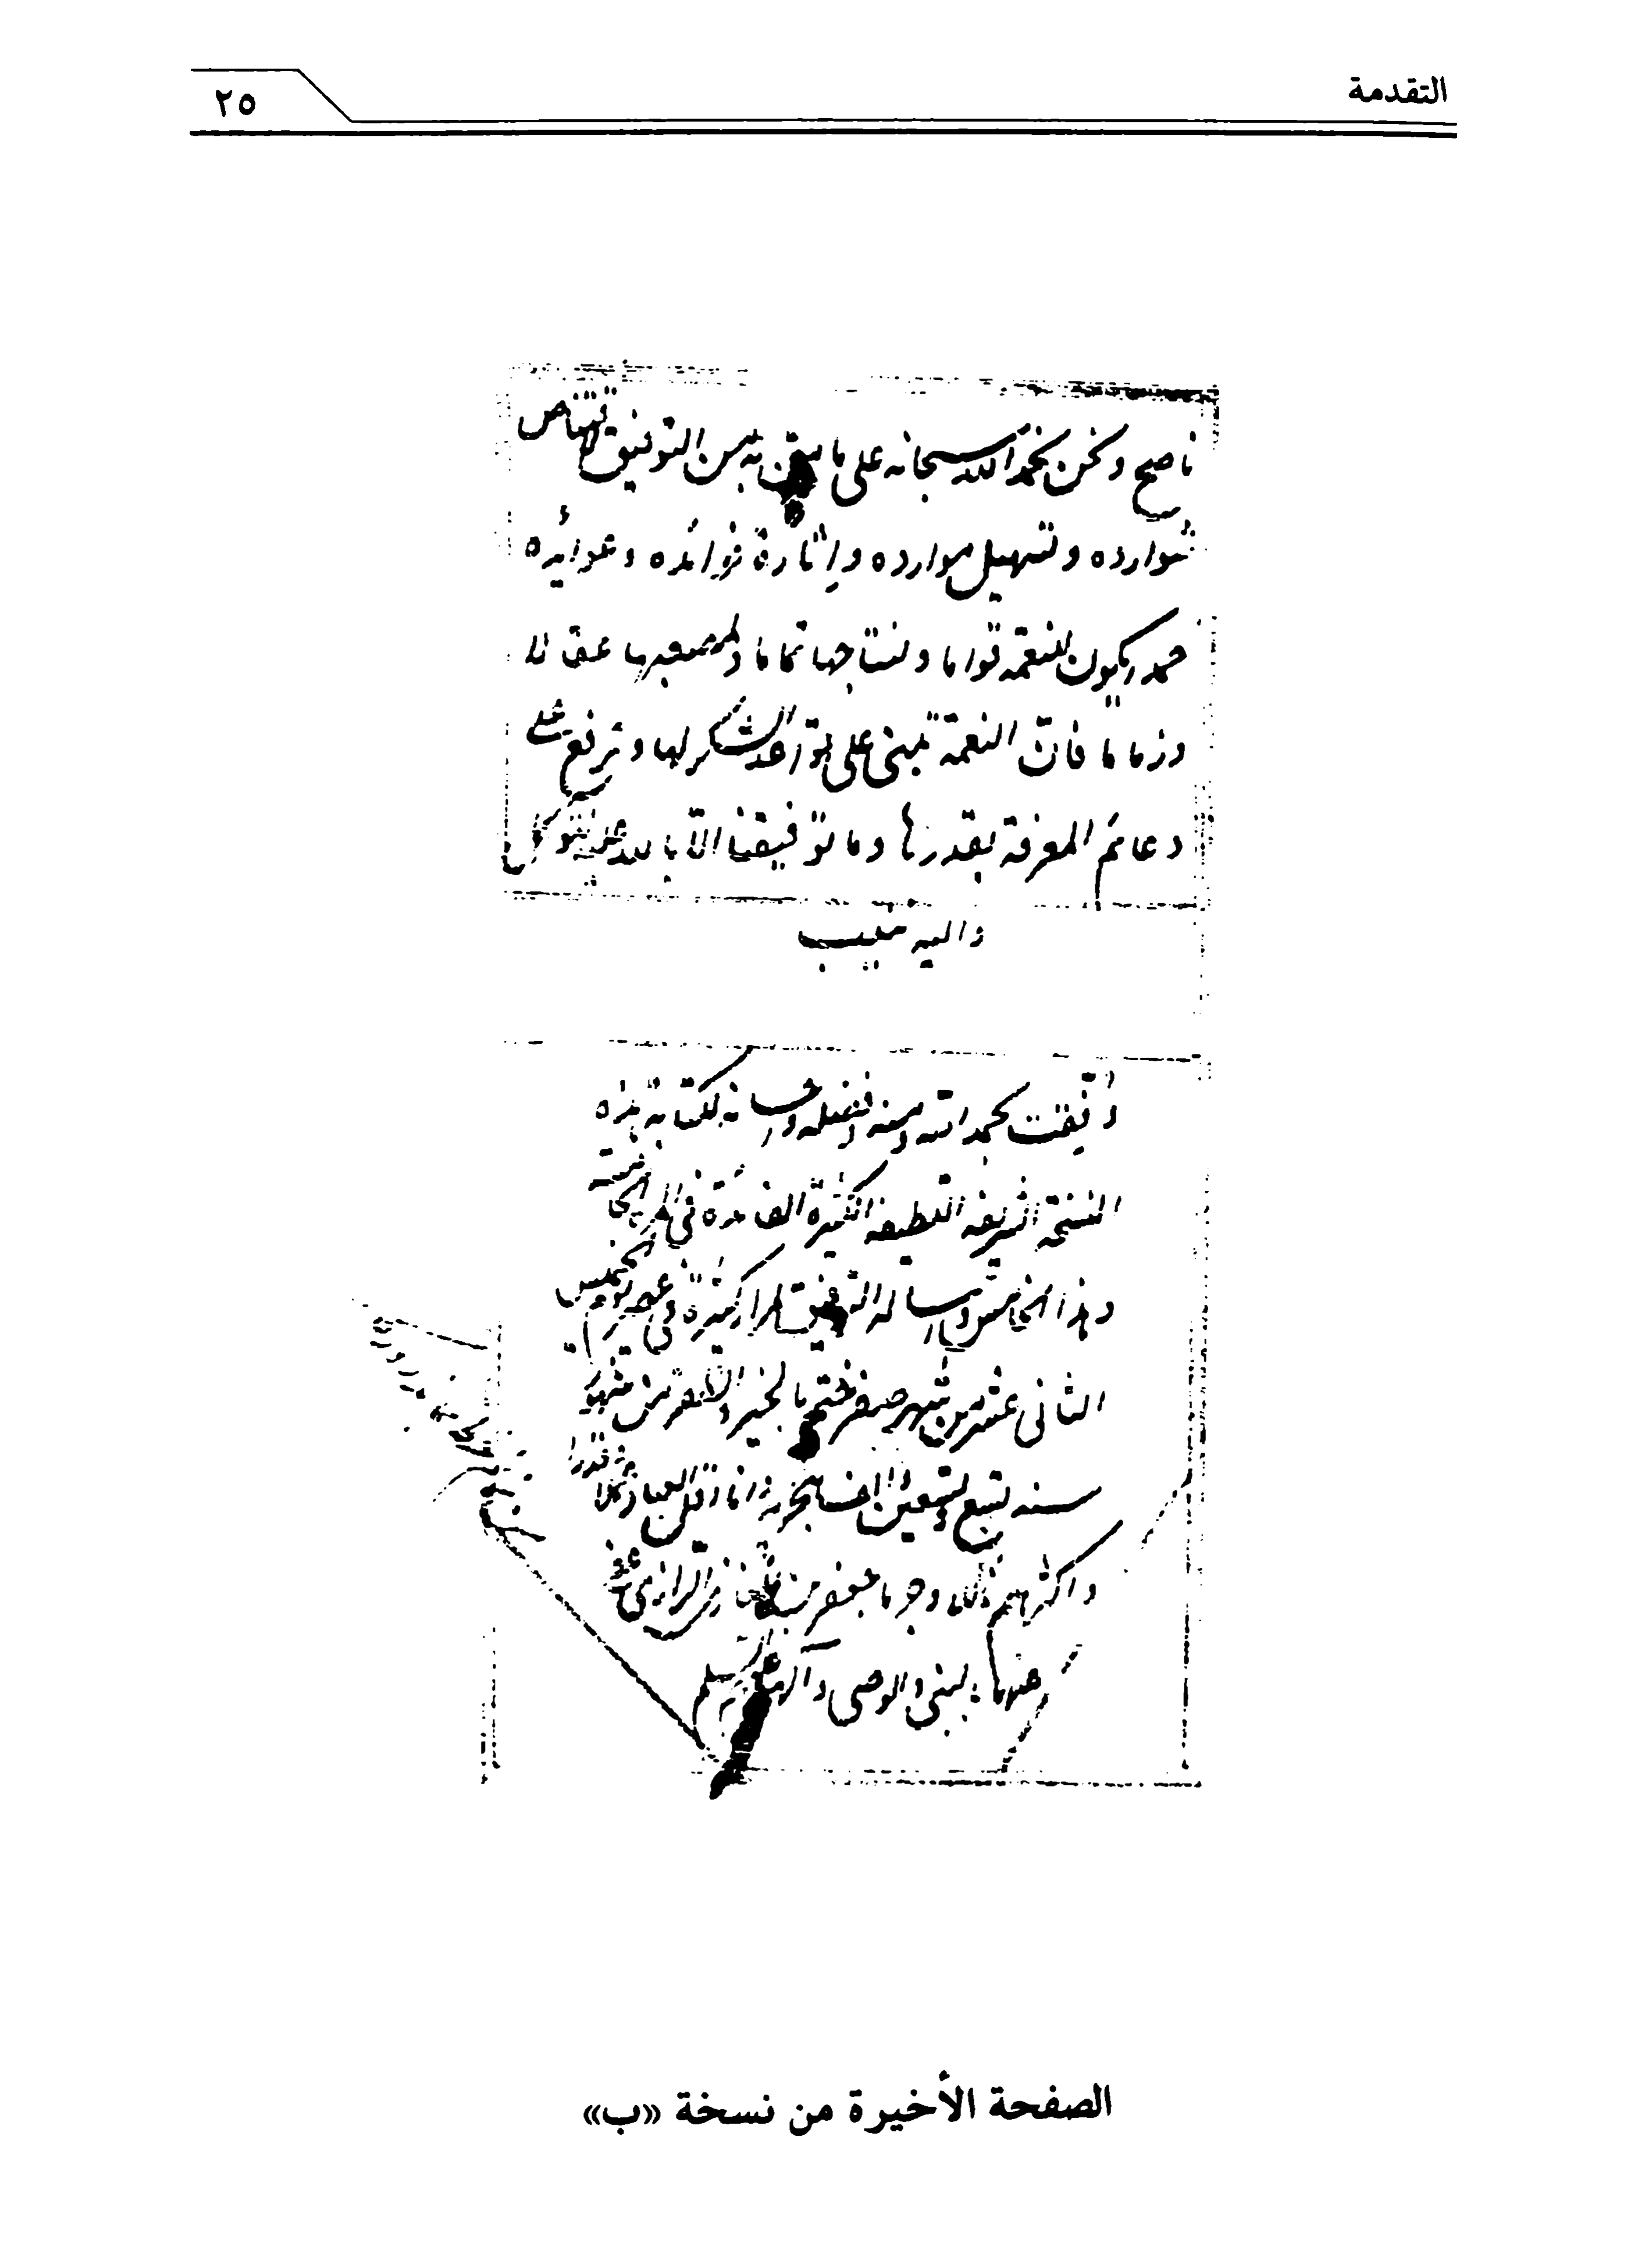 التقدمة
٢٥
ناصح ونحن نحمد الله سبحانه على ما من به من التوفيق لاقتناص
شوارده وتسهيل موارده وإثارة فوائده وعوائده
حمدا يكون للنعمة قواما ولنتاجها تماما ولمصعبها عقالا
وزماما فان النعمة تبنى على قواعد الشكر لها وترفع على
دعائم المعرفة بقدرها وما توفيقنا الا بالله عليه نتوكل
واليه ننيب
وفقت بحمد الله ومنه وفضله وإحسانه بكتابة هذه
النسخة الشريفة اللطيفة الكثيرة الفائدة في
وهذا التوفيق كثيرة في عصر يوم الخميس
الثاني عشر من شهر صفر ختم بالخير والظفر من شهور
سنة تسع وتسعين هجرية وانا اقل العباد
واكثرهم جعفر بن الرازي عفى
عنهما بالنبي والوصي وآلهما
الصفحة الأخيرة من نسخة «ب»